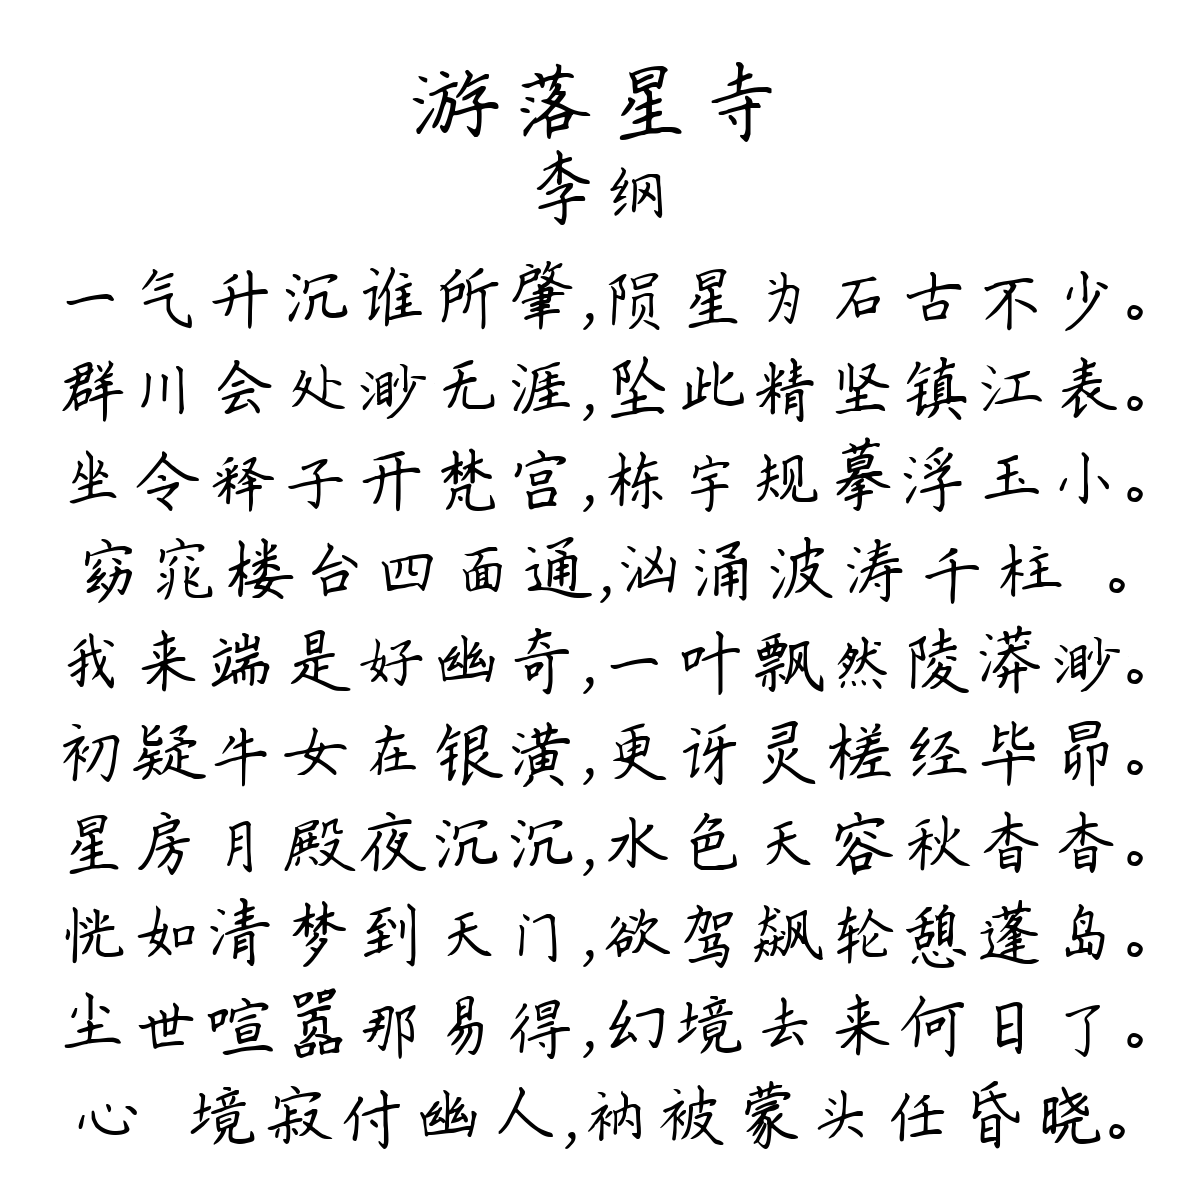 游落星寺
李纲
一气升沉谁所肇,陨星为石古不少。
群川会处渺无涯,坠此精坚镇江表。
坐令释子开梵宫,栋宇规摹浮玉小。
窈窕楼台四面通,汹涌波涛千柱 。
我来端是好幽奇,一叶飘然陵漭渺。
初疑牛女在银潢,更讶灵槎经毕昴。
星房月殿夜沉沉,水色天容秋杳杳。
恍如清梦到天门,欲驾飙轮憩蓬岛。
尘世喧嚣那易得,幻境去来何日了。
心 境寂付幽人,衲被蒙头任昏晓。